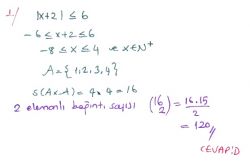 1/ |x+2| ≤ 6
-6 ≤ x+2 ≤ 6
-8 ≤ x ≤ 4 e x∈N⁺
A = {1,2,3,4}
s(AxA) = 4.4 = 16
2 elemanlı bağıntı sayısı (16 2) = 16.15 / 2
= 120//
CEVAP:D